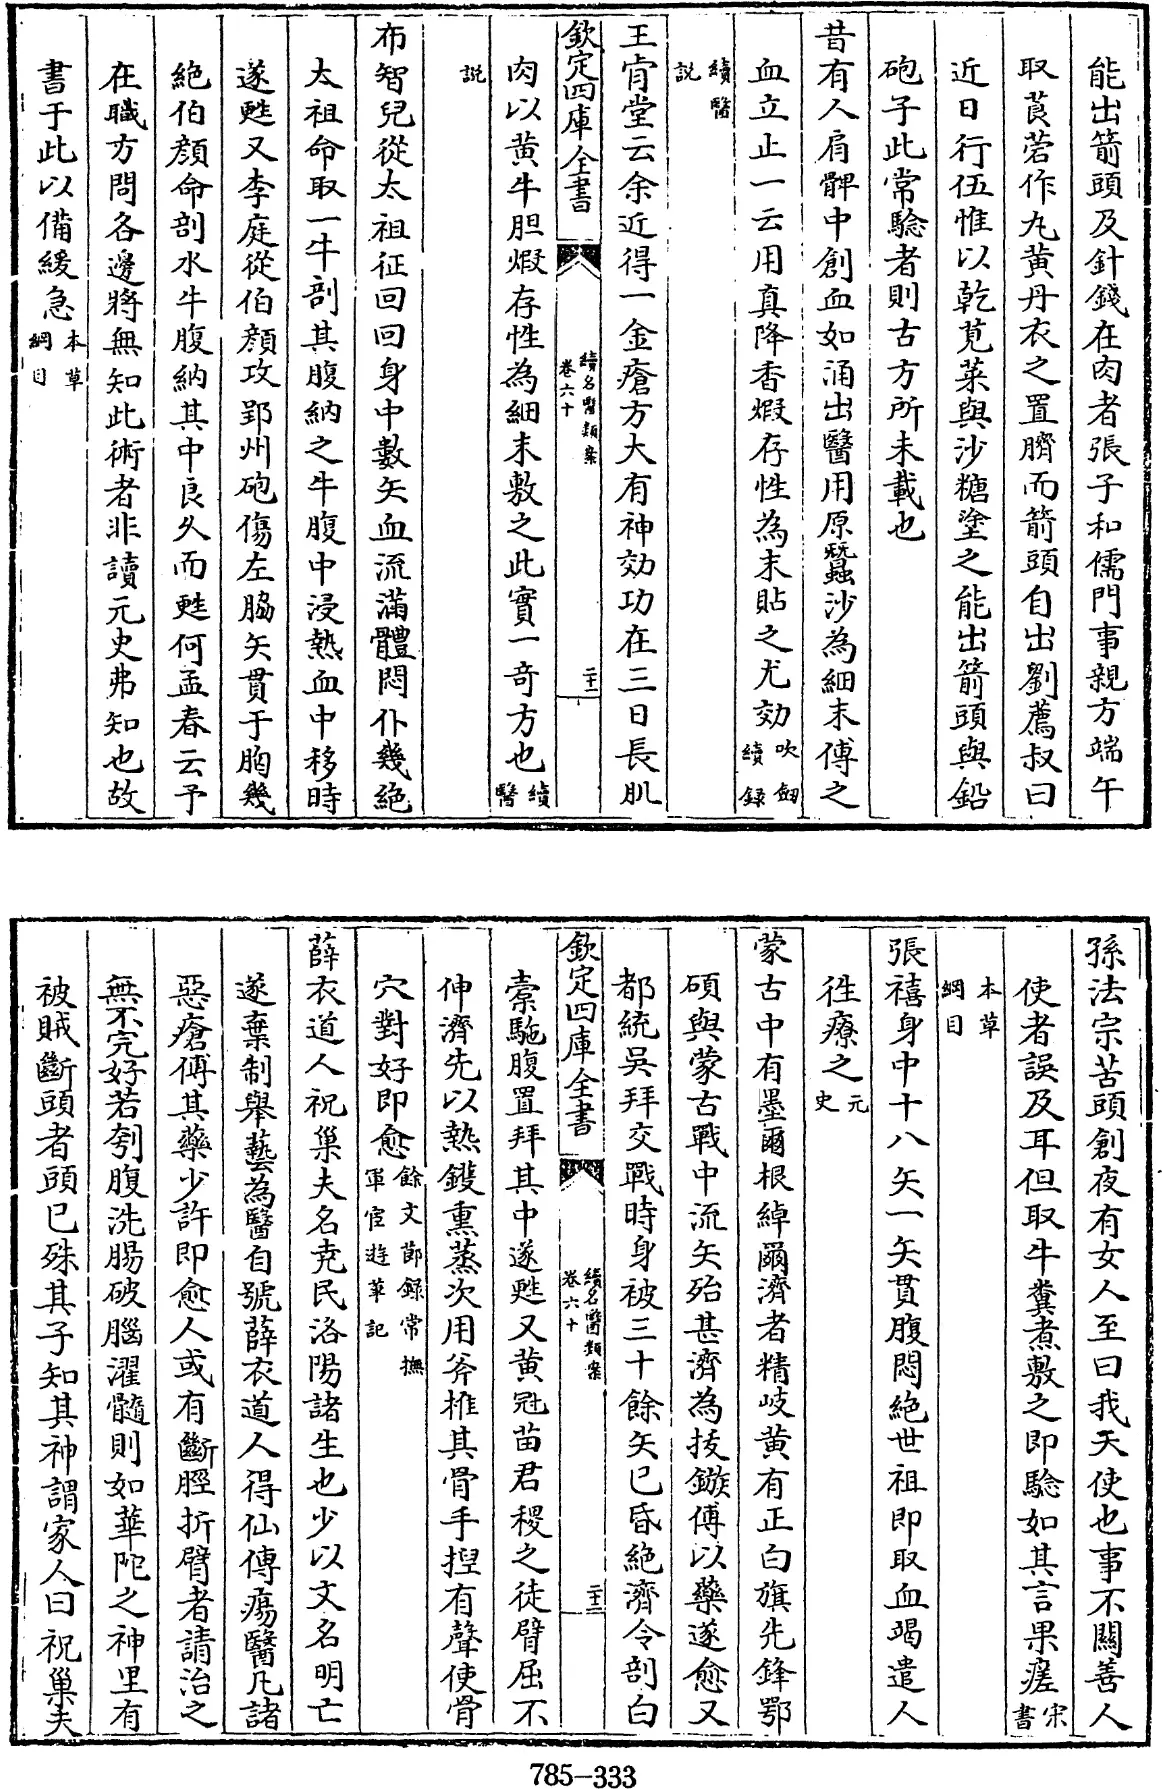 能出箭頭及針錢在肉者張子和儒門事親方端午
取莨菪作丸黄丹衣之置臍而箭頭自出劉薦叔曰
近日行伍惟以乾莧菜與沙糖塗之能出箭頭與鉛
砲子此常驗者則古方所未載也
昔有人肩髀中創血如涌出醫用原蠶沙為細末傅之
血立止一云用真降香煅存性為末貼之尤効吹劔續録
續醫説
王肯堂云余近得一金瘡方大有神効功在三日長肌
欽定四庫全書 續名醫類案 卷六十 二十二
肉以黄牛胆煅存性為細末敷之此實一奇方也續醫
説
布智兒從太祖征回回身中數矢血流滿體悶仆幾絶
太祖命取一牛剖其腹納之牛腹中浸熱血中移時
遂甦又李庭從伯顔攻郢州砲傷左脇矢貫于胸幾
絶伯顔命剖水牛腹納其中良久而甦何孟春云予
在職方問各邊將無知此術者非讀元史弗知也故
書于此以備緩急本草綱目
孫法宗苦頭創夜有女人至曰我天使也事不關善人
使者誤及耳但取牛糞煮敷之即驗如其言果瘥宋書
本草綱目
張禧身中十八矢一矢貫腹悶絶世祖即取血竭遣人
徃療之元史
蒙古中有墨爾根綽爾濟者精岐黄有正白旗先鋒鄂
碩與蒙古戰中流矢殆甚濟為拔鏃傅以藥遂愈又
都統吳拜交戰時身被三十餘矢已昏絶濟令剖白
欽定四庫全書 續名醫類案 卷六十 二十二
橐駞腹置拜其中遂甦又黄冠苗君稷之徒臂屈不
伸濟先以熱鑊熏蒸次用斧椎其骨手揑有聲使骨
穴對好即愈餘文節録常撫軍宦遊筆記
薛衣道人祝巢夫名堯民洛陽諸生也少以文名明亡
遂棄制舉藝為醫自號薛衣道人得仙傳瘍醫凡諸
惡瘡傅其藥少許即愈人或有斷脛折臂者請治之
無不完好若刳腹洗腸破腦濯髓則如華陀之神里有
被賊斷頭者頭已殊其子知其神謂家人曰祝巢夫
785-333